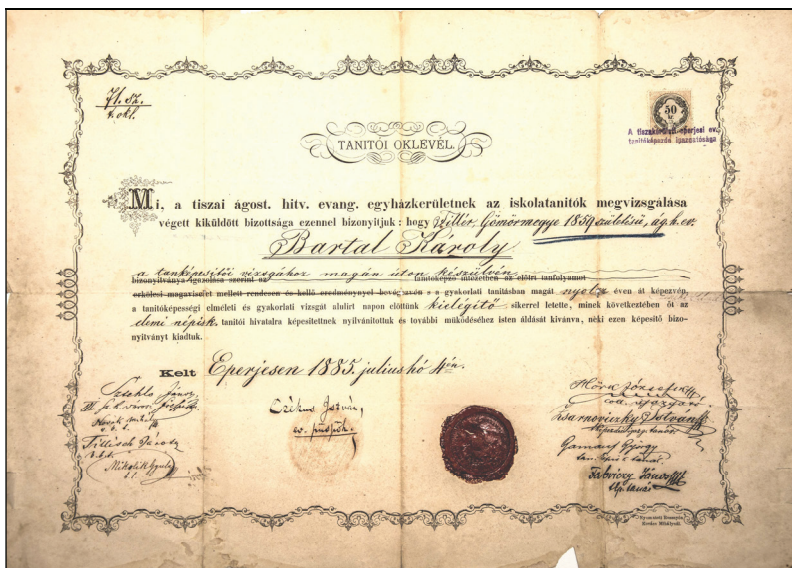 71. sz.
t. okl.
50
kr
A tiszakerületi eperjesi ev.
tanitóképezde igazgatósága
TANITÓI OKLEVÉL.
Mi, a tiszai ágost. hitv. evang. egyházkerületnek az iskolatanitók megvizsgálása
végett kiküldött bizottsága ezennel bizonyitjuk: hogy Gömörmegye 1859 születésü, ág. h. ev.
Bartal Károly
a tanképesitői vizsgához magán úton készülvén
bizonyitványa igazolása szerint az tanitóképző intézetben az előirt tanfolyamot
erkölcsi magaviselet mellett rendesen és kellő eredménynyel bevégezvén s a gyakorlati tanitásban magát nyolcz éven át képezvén,
a tanitóképességi elméleti és gyakorlati vizsgát alulirt napon előttünk kielégitő sikerrel letette, minek következtében őt az
elemi népisk. tanitói hivatalra képesitettnek nyilvánitottuk és további müködéséhez isten áldását kivánva, neki ezen képesitő bizo-
nyitványt kiadtuk.
Kelt Eperjesen 1885. julius hó 4én.
Czékus István,
ev. püspök.
Hörk József
igazgató
Csarnoviczky István
Gamauf György
Fabriczy János
Mikolik Gyula